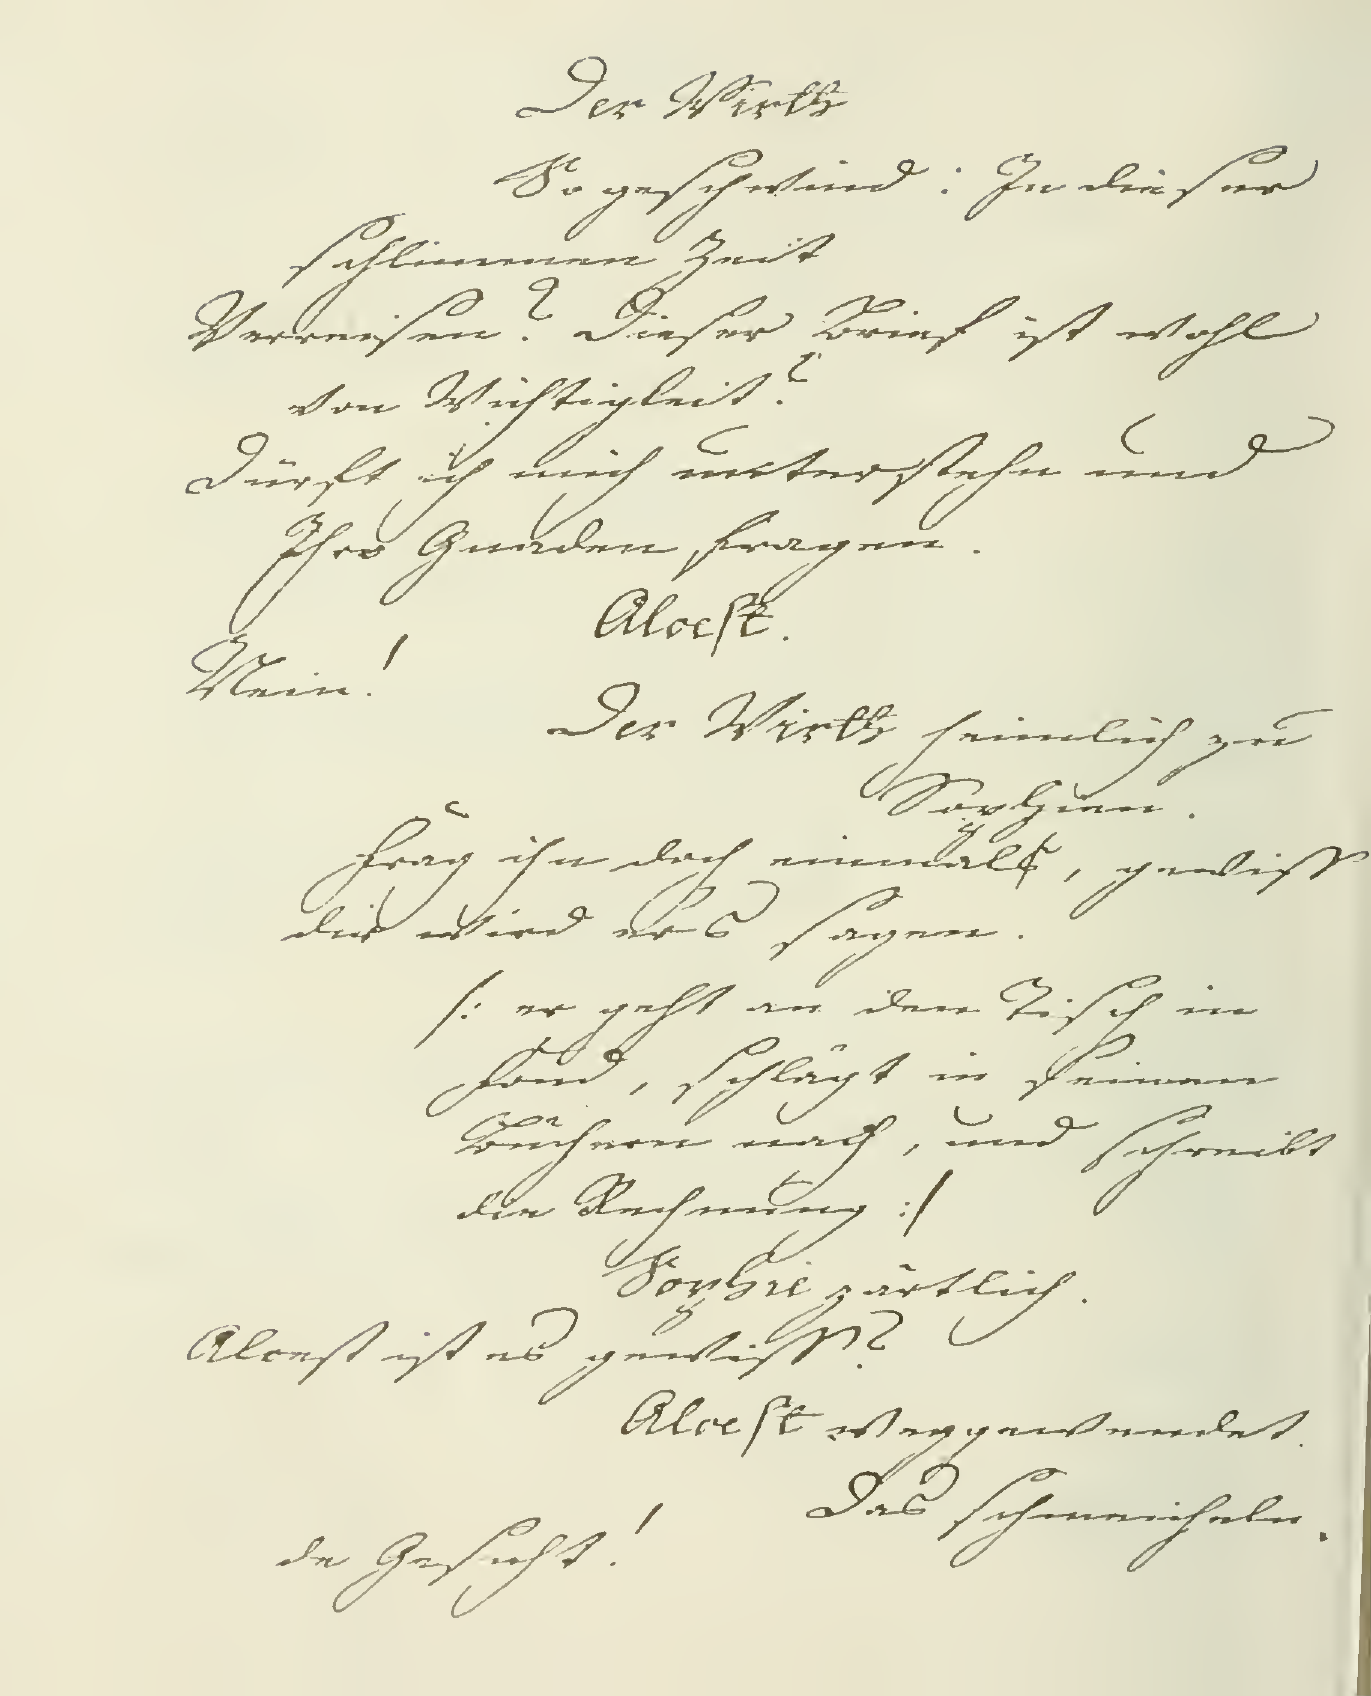 Der Wirth
So geschwind: In dieser
schlimmen Zeit
Verreisen? Dieser Brief ist wohl
von Wichtigkeit?
Dürft ich mich unterstehn und
Ihro Gnaden fragen.
Alcest.
Nein!
Der Wirth heimlich zu
Sophien.
Frag ihn doch einmahl, gewiss
dir wird ers sagen.
/: er geht an den Tisch in
Fond, schlägt in seinen
Büchern nach, und schreibt
die Rechnung :/
Sophie zärtlich.
Alcest ist es gewiss?
Alcest weggewendet.
Das schmeicheln,
de Gesicht!